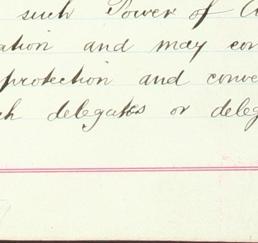 such Power of
ation and may con
protection and conve
ch delegates or deleg